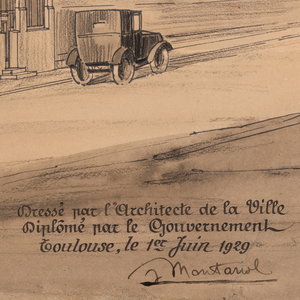 Dressé par l'Architecte de la Ville
Diplômé par le Gouvernement
Toulouse, le 1er Juin 1929